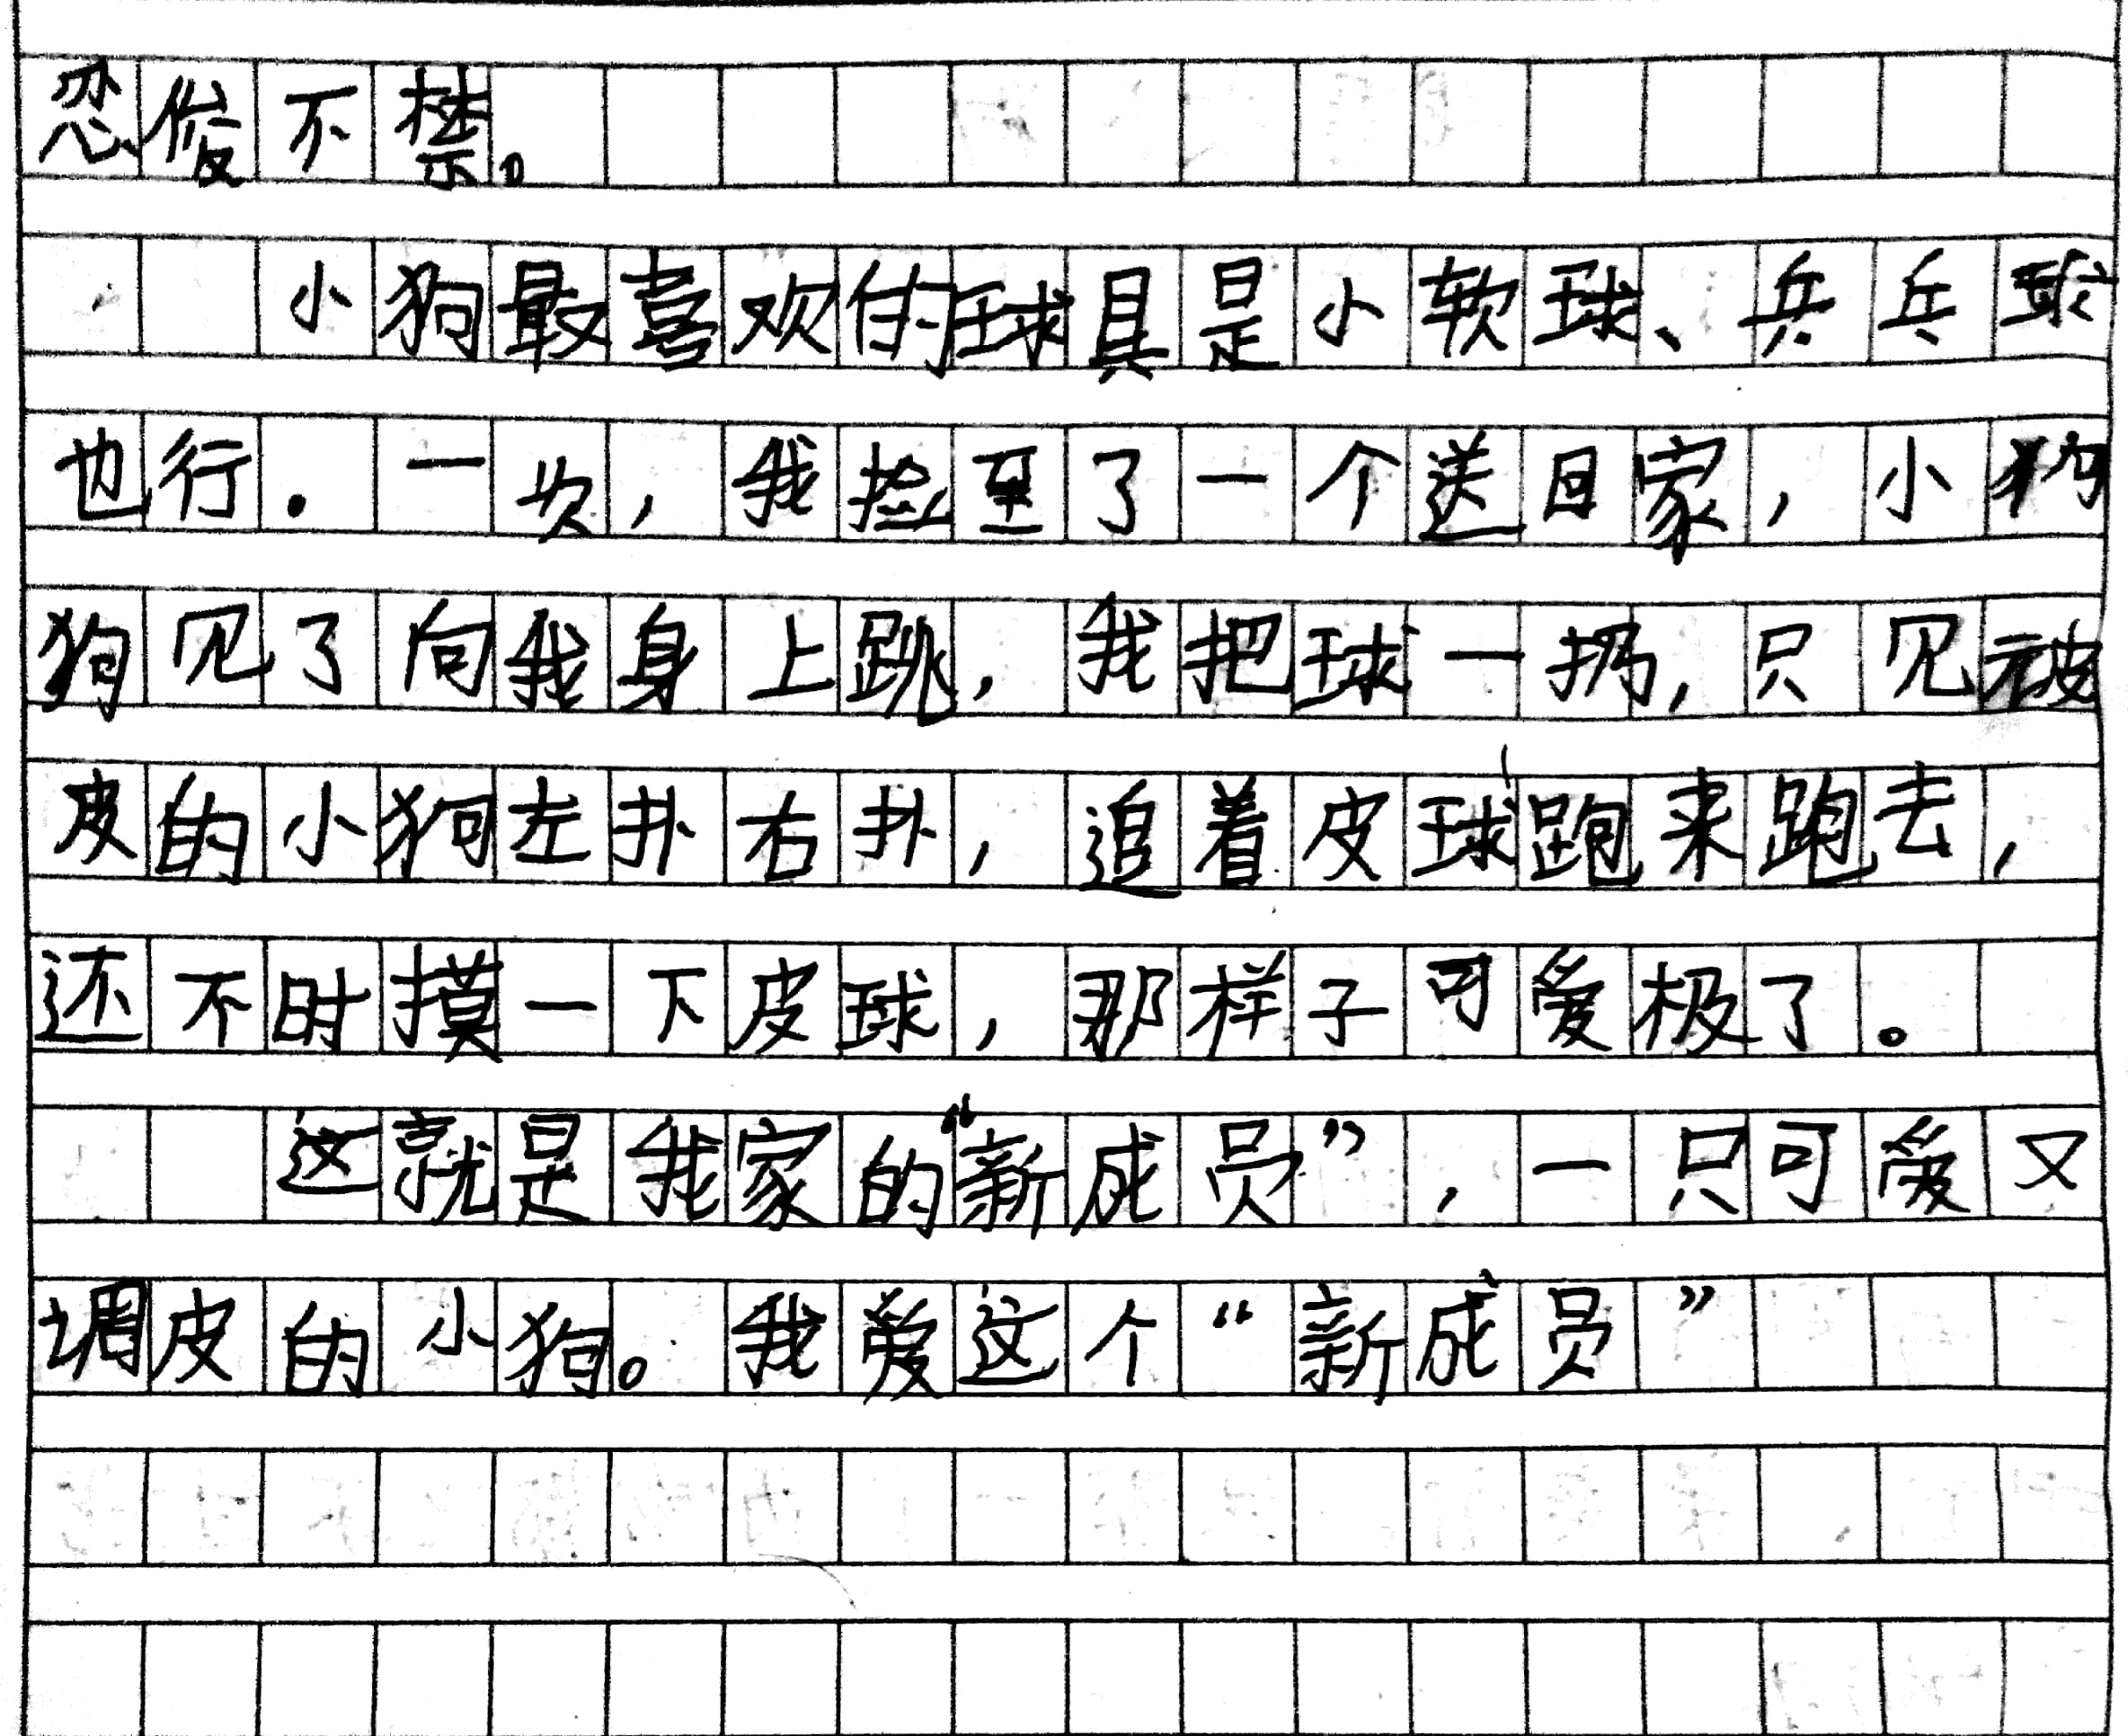 忍俊不禁。
小狗最喜欢的球具是小软球、兵乓球
也行.一次,我捡至了一个送回家,小狗
狗见了向我身上跳,我把球一扔,只见
皮的小狗左扑右扑,追着皮球跑来跑去,
还不时摸一下皮球,那样子可爱极了。
这就是我家的“新成员”,一只可爱又
调皮的小狗。我爱这个“新成员”